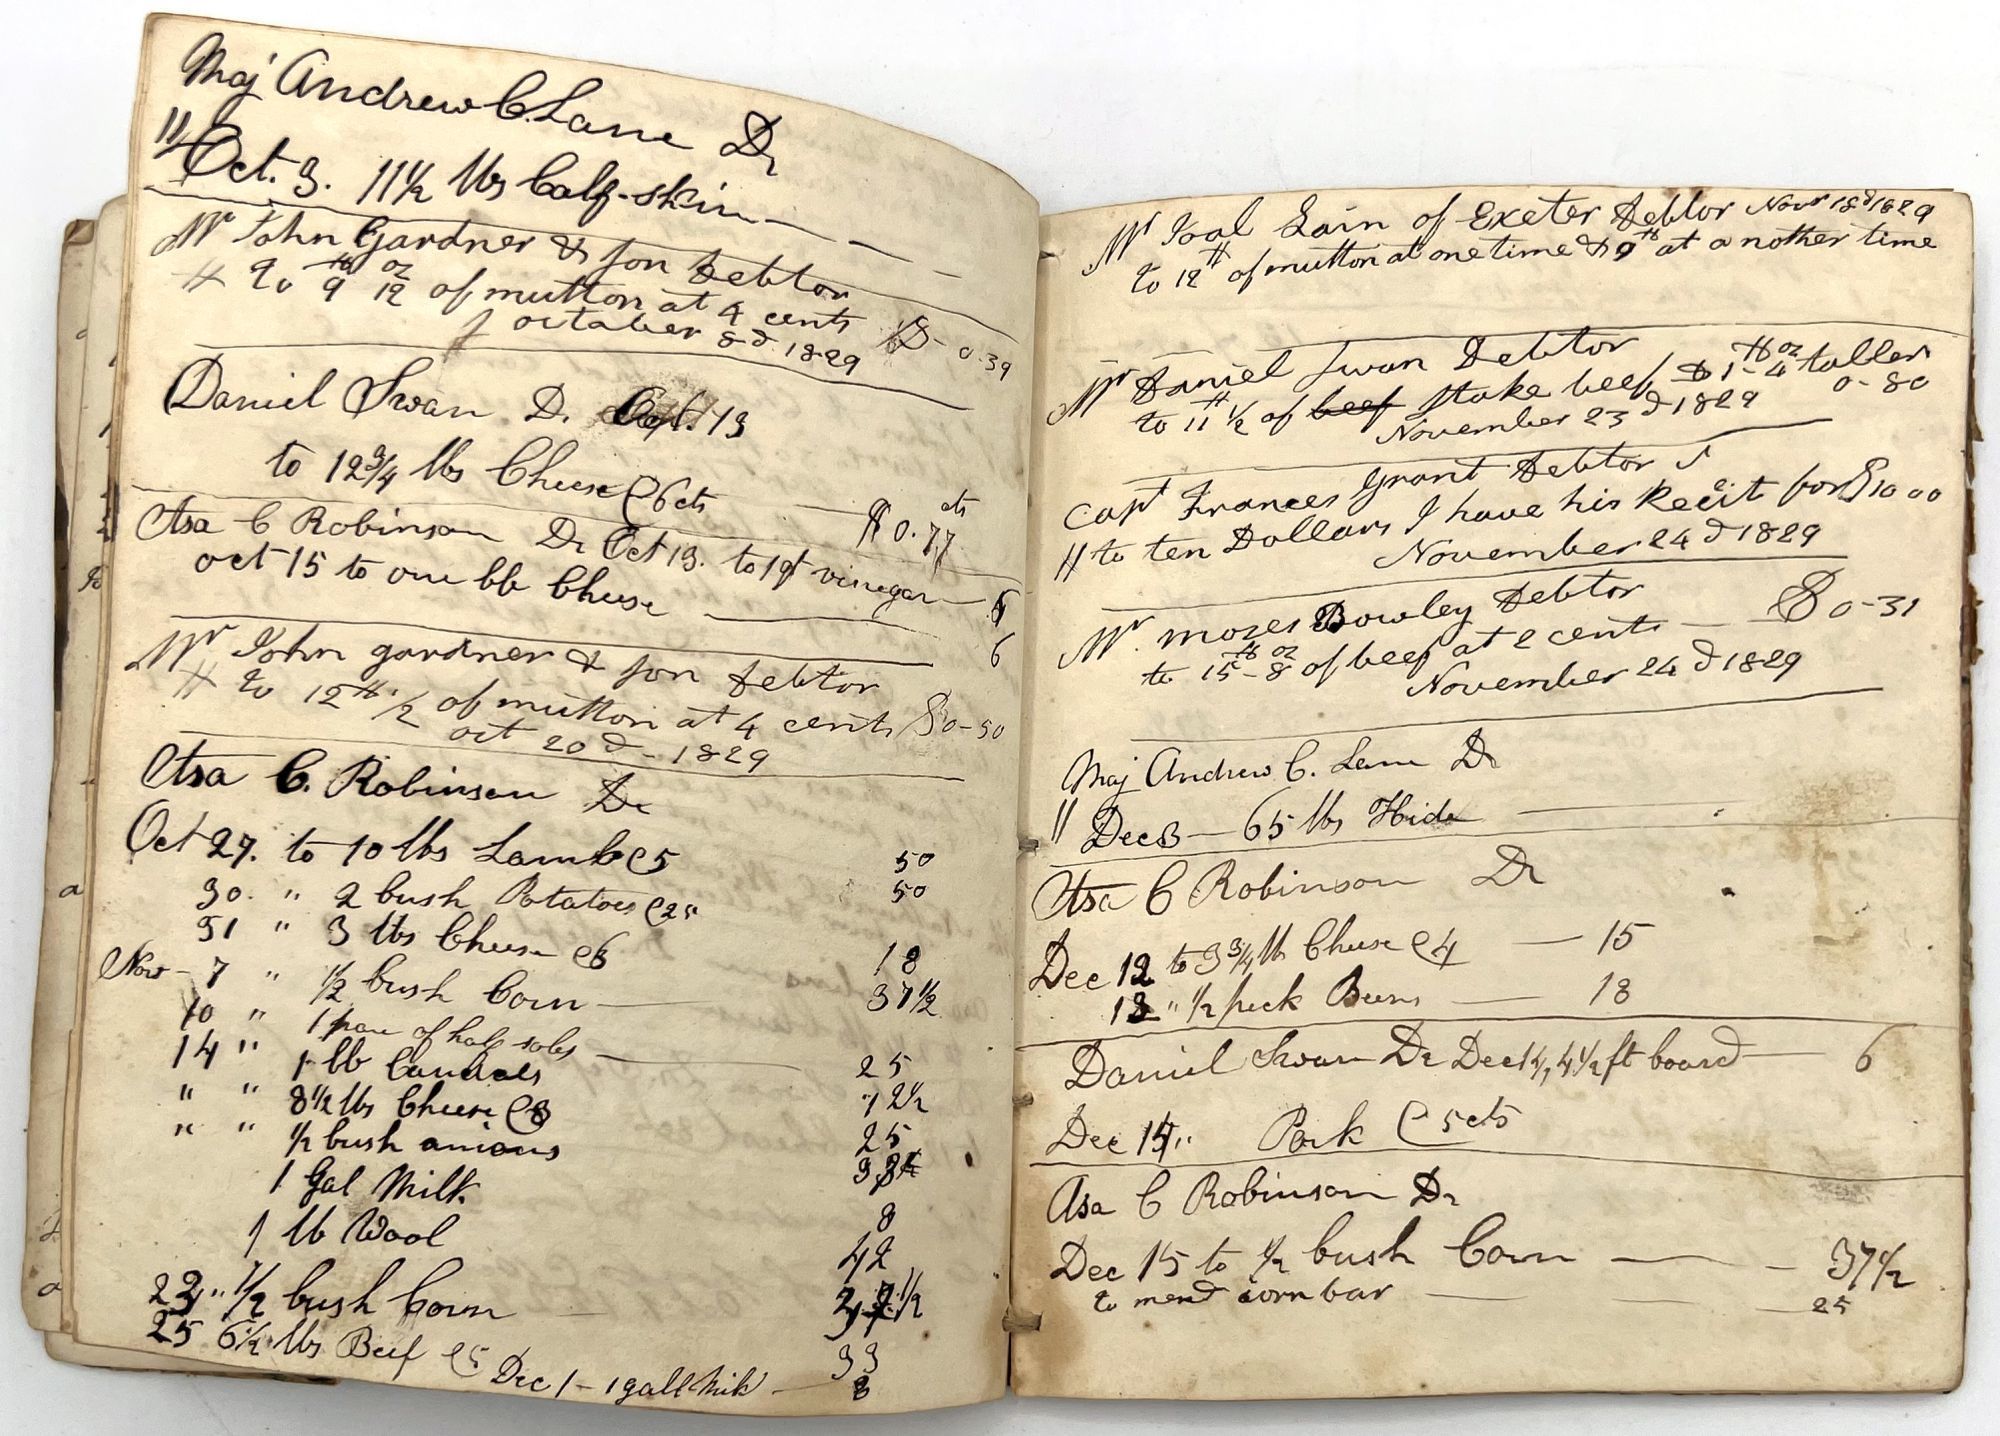 Maj Andrew C. Lane Dr
" Oct. 3. 11 1/2 lbs Calf-skin
Mr John Gardner & son Debtor
to 9 lb 12 oz of mutton at 4 cents $ 0-39
october 8d 1829
Daniel Swan Dr. Oct. 13
to 12 3/4 lbs Cheese @ 6 cts $0.77 cts
Asa C Robinson Dr Oct 13. to 1 qt vinegar 6
oct 15 to one lb Cheese 6
Mr John gardner & son Debtor
to 12 lb 1/2 of mutton at 4 cents $0-50
oct 20d - 1829
Asa C. Robinson Dr
Oct 27. to 10 lbs Lamb @ 5 50
30. " 2 bush Potatoes @ 25 50
31 " 3 lbs Cheese @ 6 18
Nov - 7 " 1/2 bush Corn 37 1/2
10 " 1 pare of half soles 25
14 " 1 lb Candels 12 1/2
" " 8 1/2 lbs Cheese @ 3 25
" " 1/2 bush onions
1 Gal Milk 8
1 lb Wool 42
23 " 1/2 bush Corn 37 1/2
25 6 1/2 lbs Beef @ 5 33
Dec 1 - 1 gall Milk 8
Mr Joal Lain of Exeter Debtor Novr 18d 1829
to 12 lb of mutton at one time & 9 lb at a nother time
Mr Daniel Swan Debtor
to 11 lb 1/2 of beef stake beef & 1 lb - 4 oz taller 0-80
November 23d 1829
Capt Frances Grant Debtor
to ten Dollars I have his Receit for $10 00
November 24d 1829
Mr. moses Bowley Debtor
to 15 lb - 8 oz of beef at 2 cents $ 0-31
November 24d 1829
Maj Andrew C. Lane Dr
" Dec 3 - 65 lbs Hide
Asa C Robinson Dr
Dec 12 to 3 3/4 lb Cheese @ 4 15
18 " 1/2 peck Beens 18
Daniel Swan Dr Dec 14, 4 1/2 ft board 6
Dec 15 " Pork @ 5 cts
Asa C Robinson Dr
Dec 15 to 1/2 bush Corn 37 1/2
to mend iorn bar 25